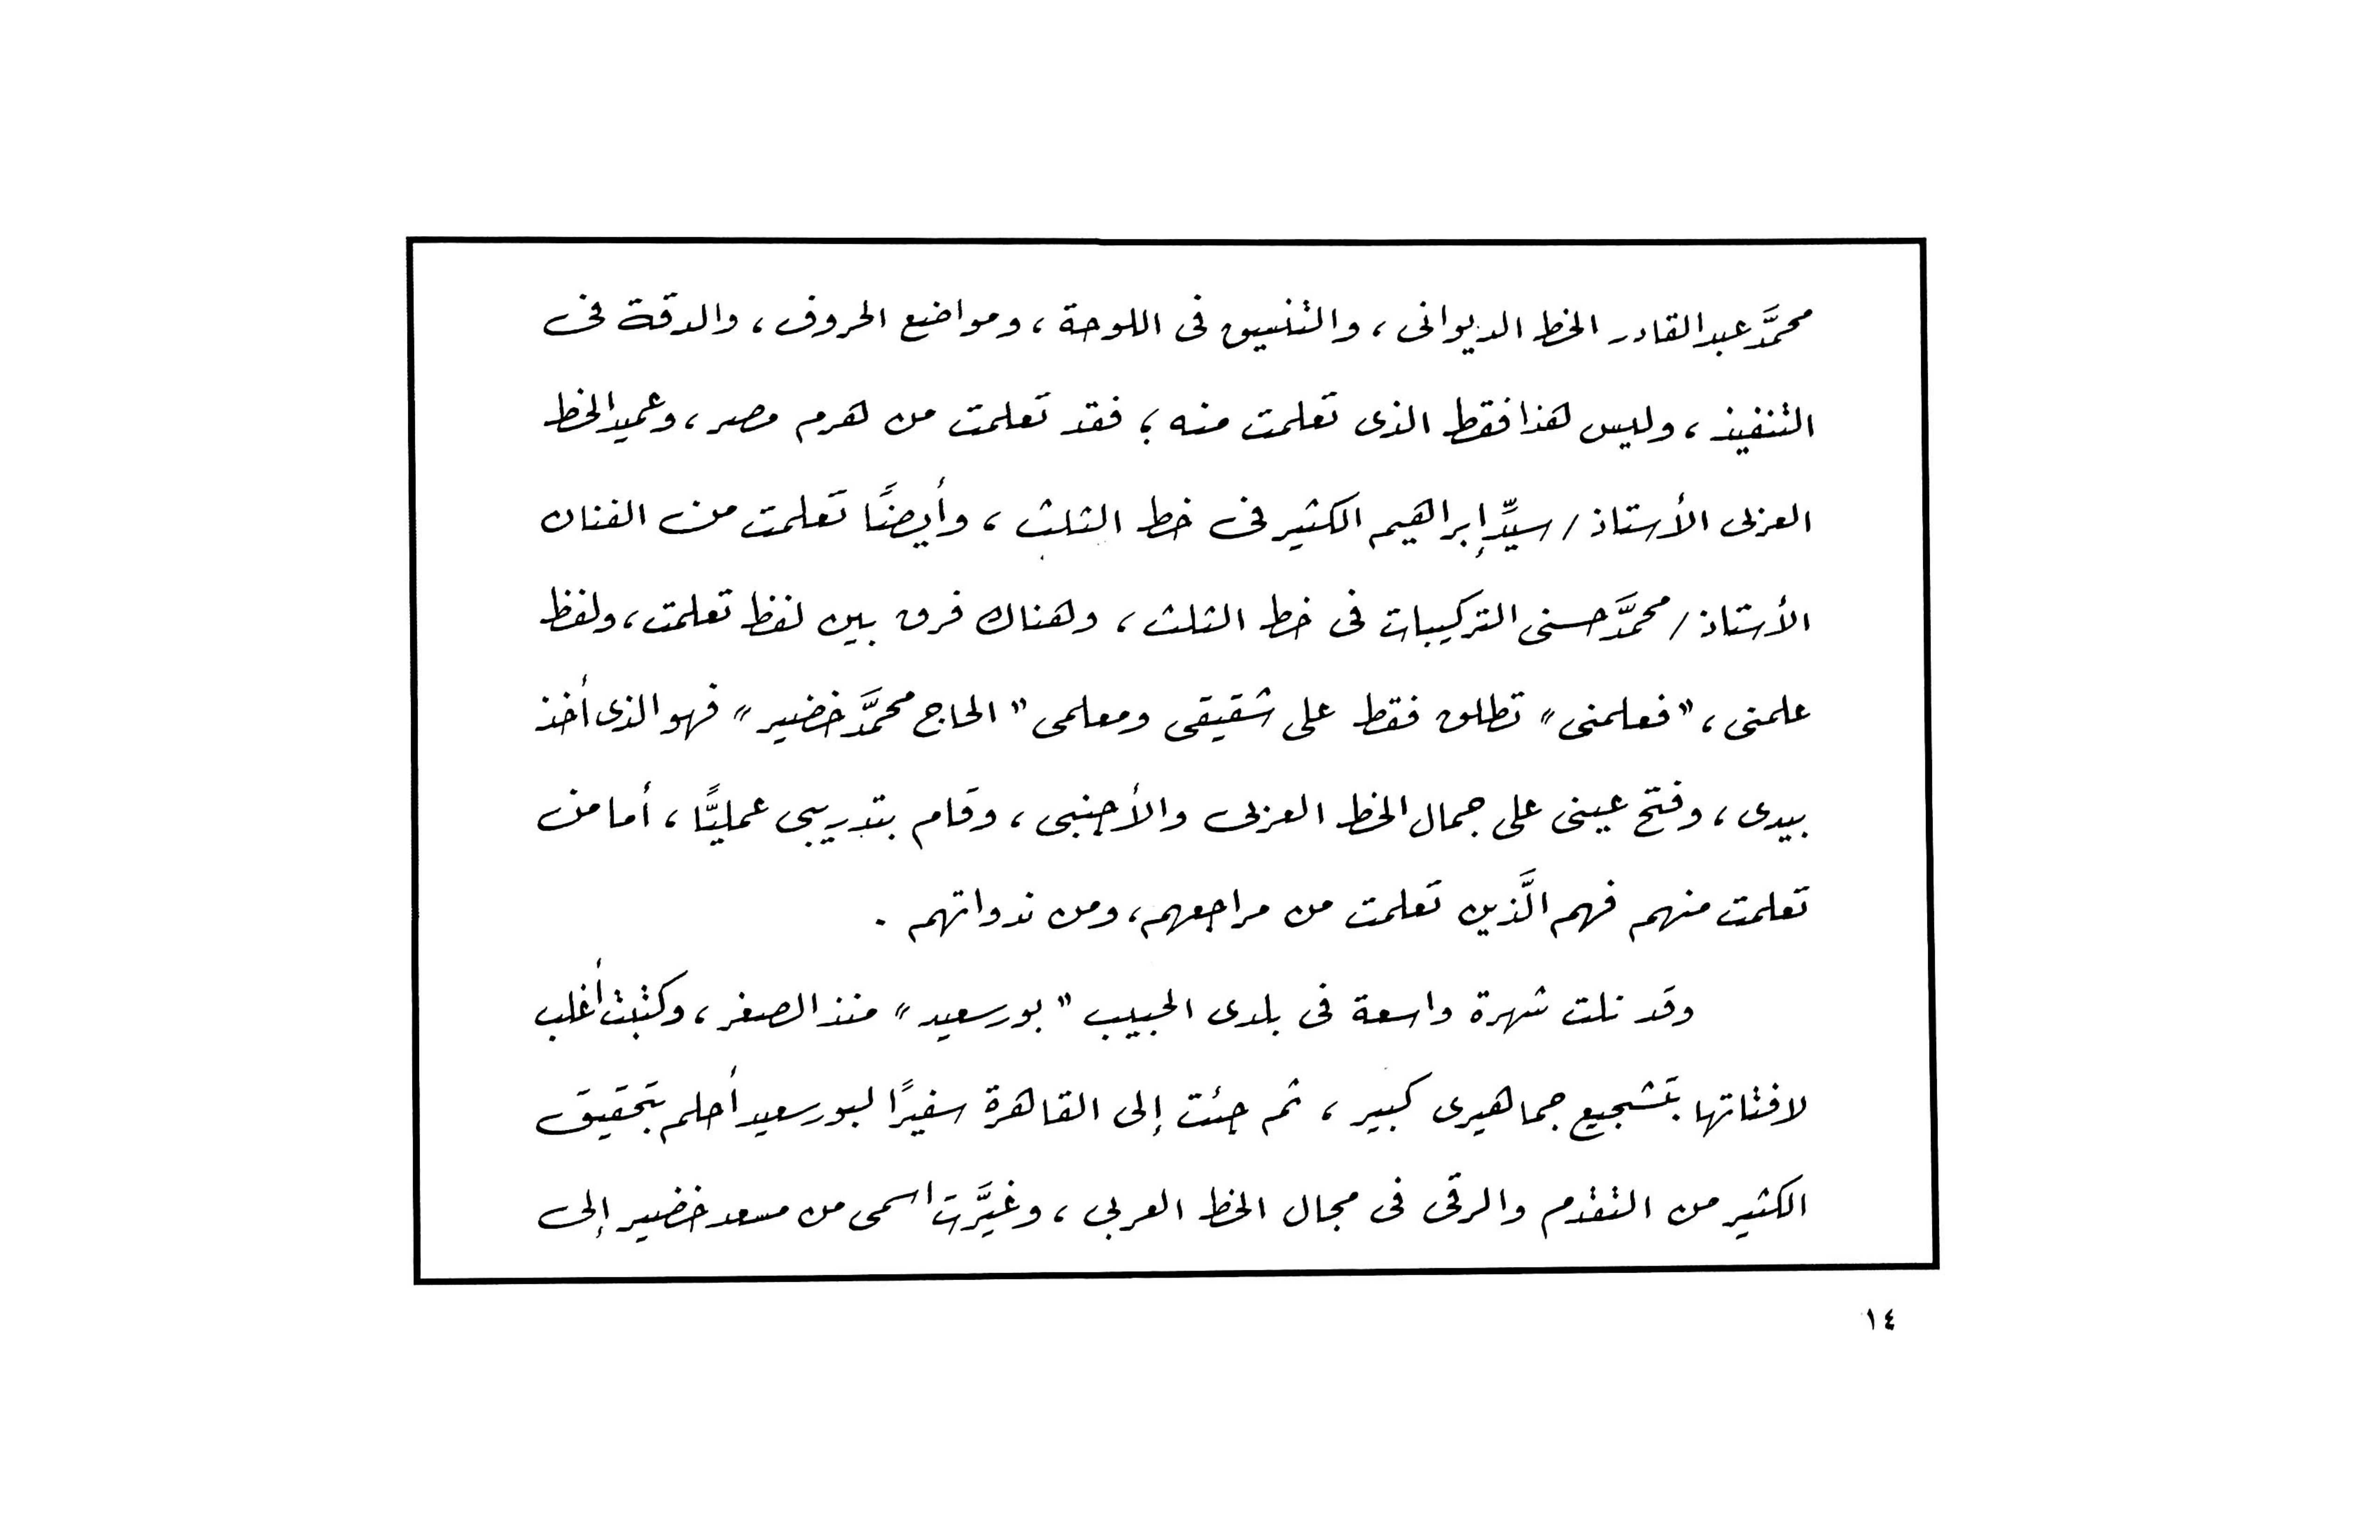 محمَّد عبد القادر الخط الديوانى ، والتنسيق فى اللوحة ، ومواضع الحروف ، والدقة فى
التنفيذ ، وليس هذا فقط الذى تعلمت منه ؛ فقد تعلمت من هرم مصر ، وعميد الخط
العربى الأستاذ / سيِّد إبراهيم الكثير فى خط الثلث ، وأيضًا تعلمت من الفنان
الأستاذ / محمَّد حسنى التركيبات فى خط الثلث ، وهناك فرق بين لفظ تعلمت ، ولفظ
علمنى ، "فعلمنى" تطلق فقط على شقيقى ومعلمى "الحاج محمَّد خضير" فهو الذى أخذ
بيدى ، وفتح عينى على جمال الخط العربى والأجنبى ، وقام بتدريبى عمليًّا ، أما من
تعلمت منهم فهم الَّذين تعلمت من مراجعهم ، ومن ندواتهم .
وقد نلت شهرة واسعة فى بلدى الحبيب "بورسعيد" منذ الصغر ، وكتبت أغلب
لافتاتها بتشجيع جماهيرى كبير ، ثم جئت إلى القاهرة سفيرًا لبورسعيد أحلم بتحقيق
الكثير من التقدم والرقى فى مجال الخط العربى ، وغيَّرت اسمى من مسعد خضير إلى
١٤